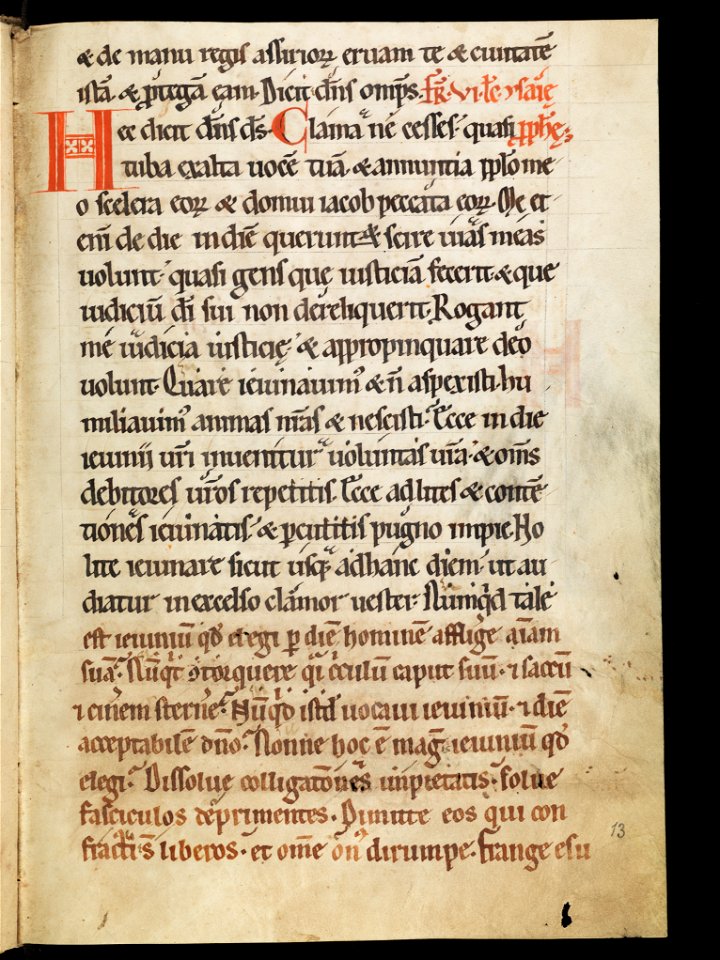 & de manu regis assirioꝝ eruam te & ciuitatē
istā. & ꝓtegā eam. Dicit dn̄s om̄ps. Fr̄. vi. le ysaię
Hec dicit dn̄s ds̄. Clama ne cesses. quasi pph̄ę
tuba exalta uocē tuā. & annuntia pplo me
o scelera eoꝝ & domui iacob peccata eoꝝ. Me et
eni de die in diē querunt & scire uias meas
uolunt. quasi gens que iusticiā fecerit. & que
iudiciū dī sui non dereliquerit. Rogant
me iudicia iusticię. & appropinquare deo
uolunt. Quare ieiunauim᷒ & n̄ aspexisti. hu
miliauim᷒ animas nr̄as & nescisti. Ecce in die
ieiunii ur̄i inuenitur uoluntas ur̄a. & om̄s
debitores ur̄os repetitis. Ecce ad lites & contē
tiones ieiunatis. & ꝑcutitis pugno impie. No
lite ieiunare sicut usq; ad hanc diem. ut au
diatur in excelso clamor uester. Nūmqd tale
est ieiuniū qd̄ elegi ꝑ diē hominē affligē aīam
suā. Nūqt ɔtorquere qi cc̄ulū caput suū. ⁊ saccū
⁊ cinem sternē. Nūqd istd uocaui ieiuniū. ⁊ diē
acceptabilē dn̄o. Nonne hoc ē maḡ ieiuniū qd̄
elegi. Dissolue colligatōnes impietatis. solue
fasciculos deprimentes. Dimitte eos qui con
fracti s̄ liberos. et om̄e on᷒ dirumpe. frange esu
13